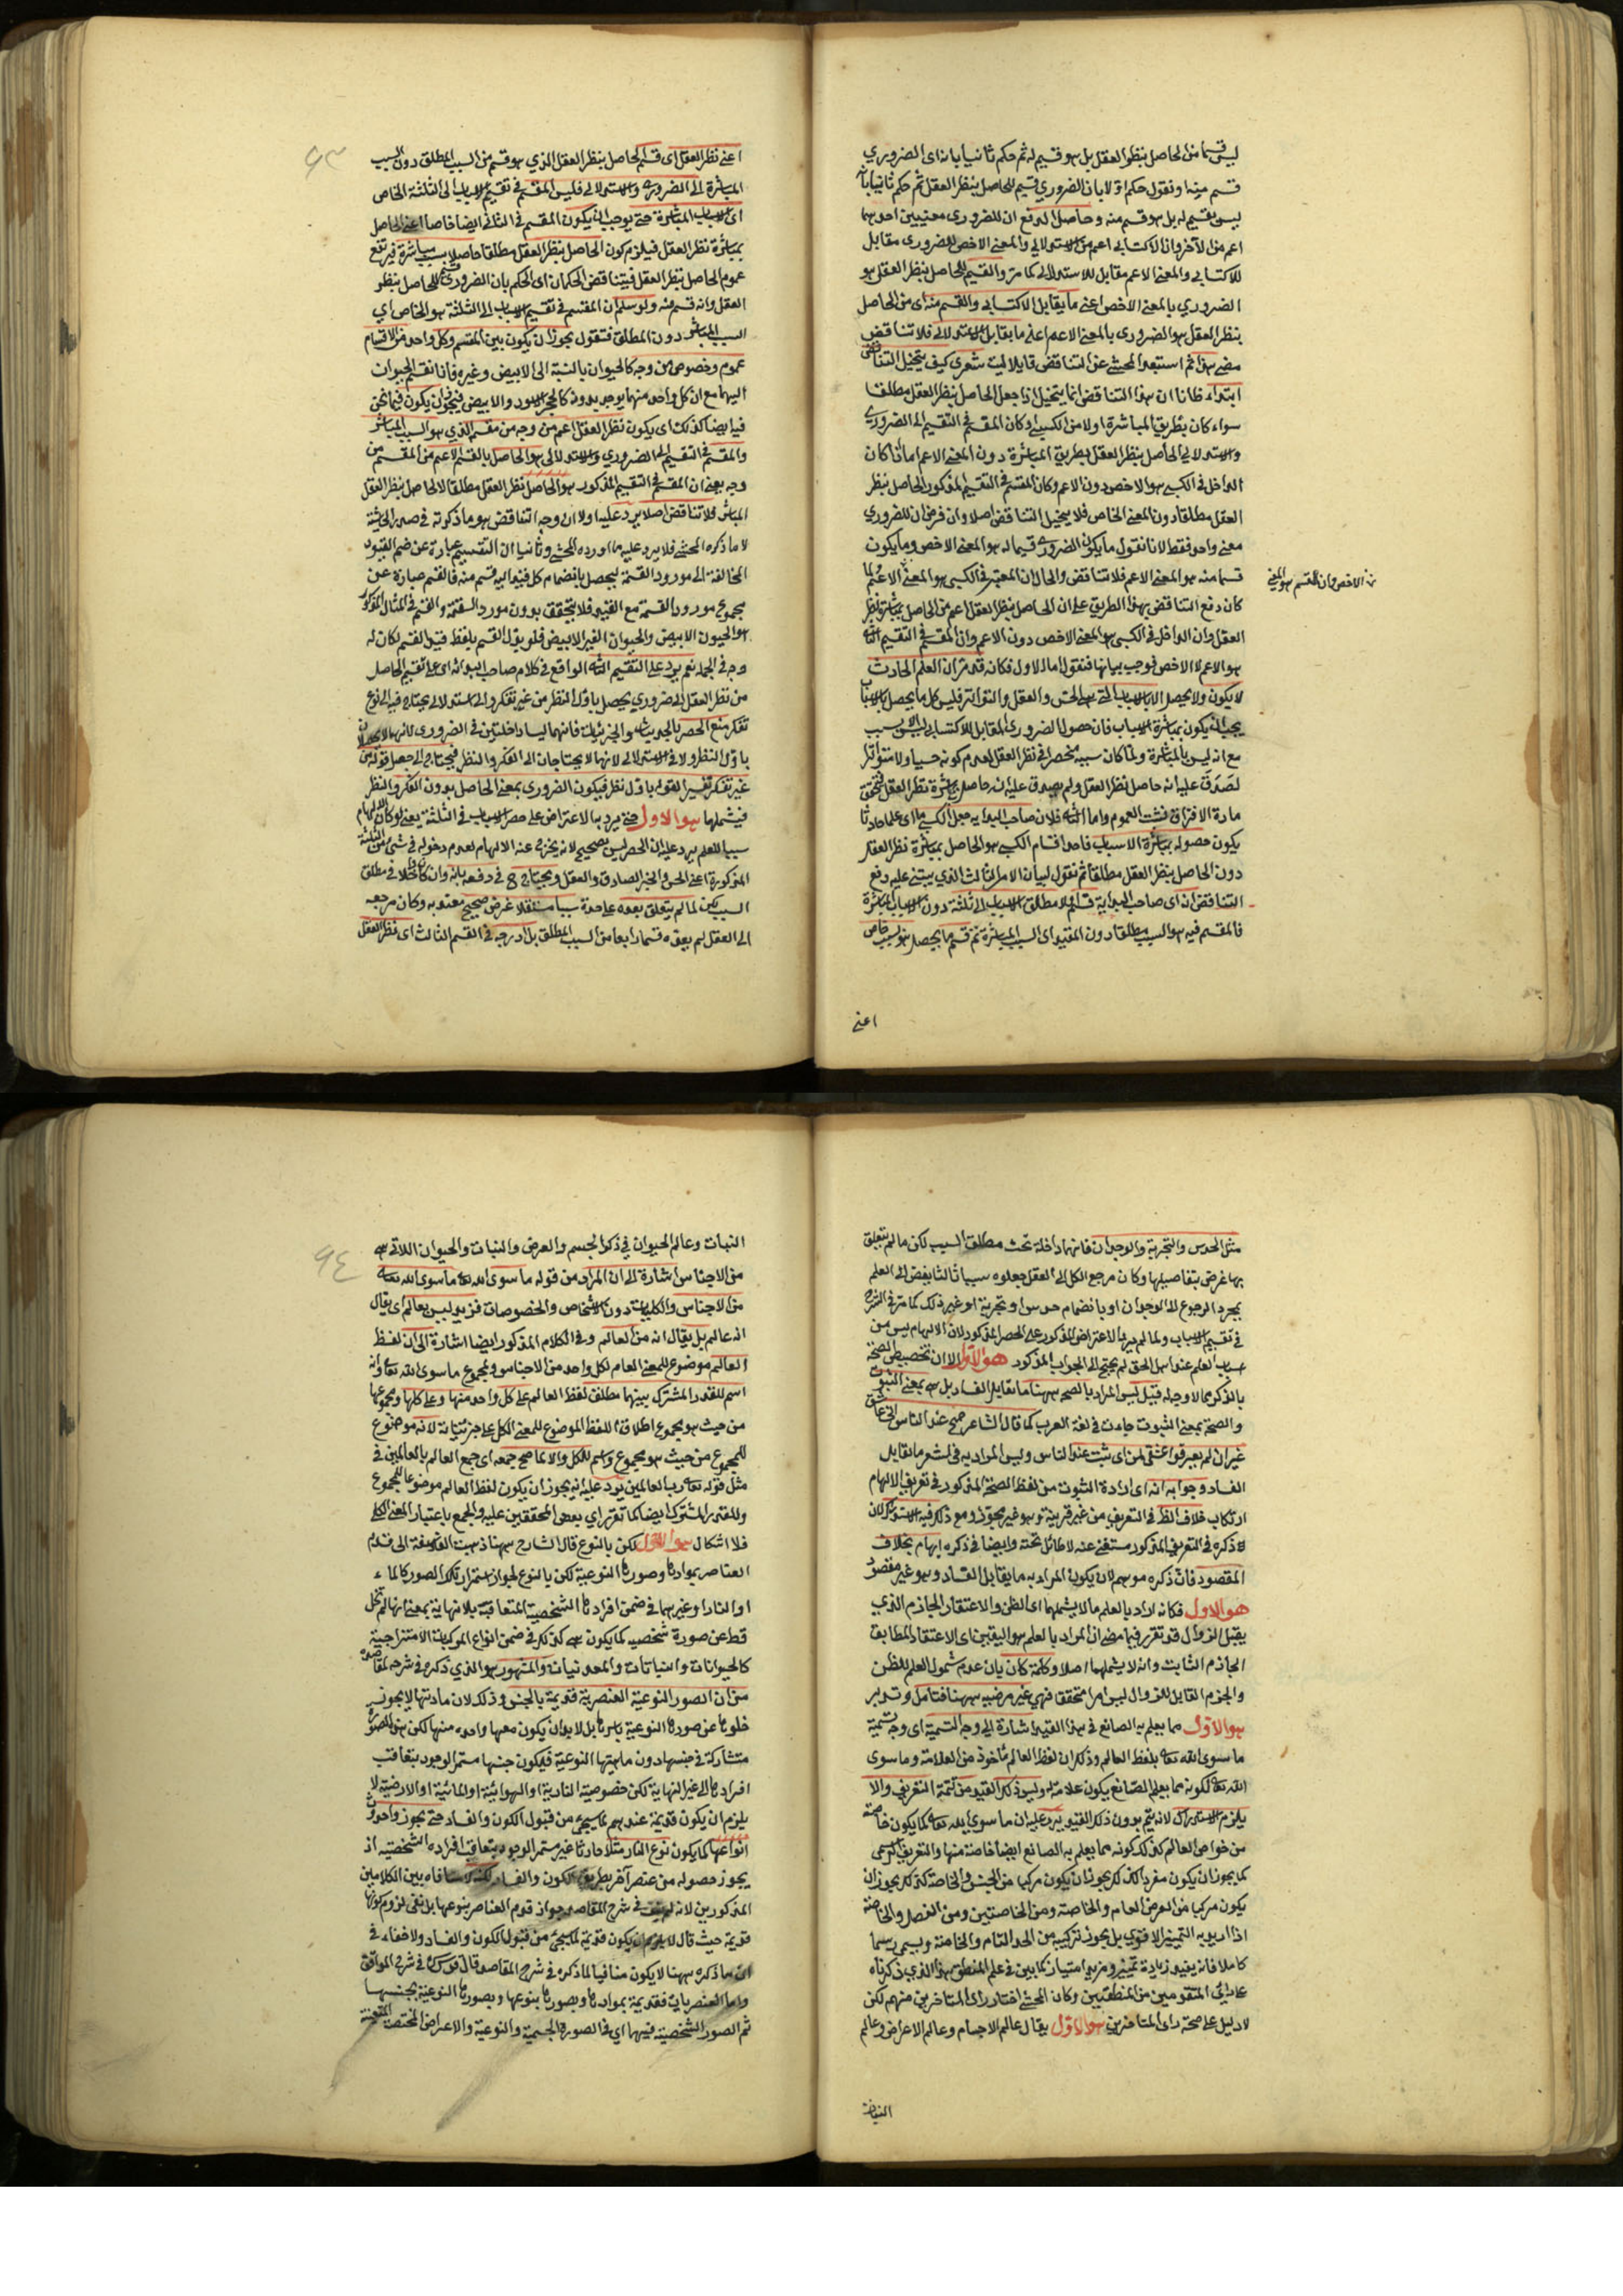 ليس قسما من الحاصل بنظر العقل بل هو قسيم له ثم حكم ثانيا بانه اى الضروري
قسم منه او نقول حكم اولا بان الضروري قسيم للحاصل بنظر العقل ثم حكم ثانيا بانه
ليس بقسيم له بل هو قسم منه وحاصل الدفع ان للضرورى معنيين احدهما
اعم من الآخر وان الاكتسابي اعم من الاستدلالي والمعنى الاخص للضرورى مقابل
للاكتسابي والمعنى الاعم مقابل للاستدلالى كما مر والقسيم للحاصل بنظر العقل هو
الضروري بالمعنى الاخص اعنى ما يقابل الاكتسابي والقسم منه اى من الحاصل
بنظر العقل هو الضرورى بالمعنى الاعم اعنى ما يقابل الاستدلالى فلا تناقض
مضى هذا ثم استبعد المحشى عن التناقض قايلا ليت شعرى كيف يتخيل التناقض
ابتداء ظانا ان هذا التناقض انما يتخيل اذا جعل الحاصل بنظر العقل مطلقا
سواء كان بطريق المباشرة اولا من الكسبى او كان المقسم فى التقسيم الى الضرورى
والاستدلالي الحاصل بنظر العقل بطريق المباشرة دون المعنى الاعم اما ان كان
الداخل فى الكسبى هو الاخص دون الاعم وكان المقسم فى التقسيم المذكور الحاصل بنظر
العقل مطلقا دون المعنى الخاص فلا يتخيل التناقض اصلا وان فرض ان للضروري
معنى واحد فقط لانا نقول ما يكون الضرورى قسيما له هو المعنى الاخص وما يكون
قسما منه هو المعنى الاعم فلا تناقض والحال ان المعتبر فى الكسبى هو المعنى الاعم لما
الاخص وان المقسم هو المعنى
كان دفع التناقض بهذا الطريق على ان الحاصل بنظر العقل اعم من الحاصل بمباشرة نظر
العقل وان الداخل فى الكسبى هو المعنى الاخص دون الاعم وان المقسم فى التقسيم الثانى
هو الاعم لا الاخص فوجب بيانها فنقول اما الاول فكانه قد مر ان العلم الحادث
لا يكون ولا يحصل الا بالاسباب التى هى الحس والعقل والتواتر فليس كل ما يحصل بالاسباب
يجب ان يكون بمباشرة الاسباب فان حصول الضرورى المقابل للاكتسابى ليس بلا سبب
مع انه ليس بالمباشرة ولما كان سببه منحصرا فى نظر العقل لعدم كونه حسيا ولا متواترا
لصدق عليه انه حاصل بنظر العقل ولم يصدق عليه انه حاصل بمباشرة نظر العقل فتحقق
مادة الافتراق فثبت العموم واما الثانى فلان صاحب البداية جعل الكسبى اى علما حادثا
يكون حصوله بمباشرة الاسباب فاحد اقسام الكسبى هو الحاصل بمباشرة نظر العقل
دون الحاصل بنظر العقل مطلقا ثم نقول لبيان الامر الثالث الذى يبتنى عليه دفع
التناقض انه اى صاحب البداية قسم اولا مطلق الاسباب الى ثلثة دون الاسباب المباشرة
فالمقسم فيه هو السبب مطلقا دون المقيد اى السبب المباشرة ثم قسم ما يحصل بسبب خاص
اعنى
٩٣
اعنى نظر العقل اى قسم الحاصل بنظر العقل الذي هو قسم من السبب المطلق دون السبب
المباشرة الى الضرورى والاستدلالى فليس المقسم فى تقسيم الاسباب الى الثلثة الخاص
اى الاسباب المباشرة حتى يوجب ان يكون المقسم فى الثانى ايضا خاصا اعنى الحاصل
بمباشرة نظر العقل فيلزم كون الحاصل بنظر العقل مطلقا حاصلا بسبب مباشرة فيرتفع
عموم الحاصل بنظر العقل فيتناقض الحكمان اى الحكم بان الضرورى قسيم للحاصل بنظر
العقل وانه قسم منه ولو سلم ان المقسم فى تقسيم الاسباب الى الثلثة هو الخاص اى
السبب المباشر دون المطلق فنقول يجوز ان يكون بين المقسم وكل واحد من الاقسام
عموم وخصوص من وجه كالحيوان بالنسبة الى الابيض وغيره فانا نقسم الحيوان
اليهما مع ان كل واحد منهما يوجد بدونه كالحجر الاسود والابيض فيجوز ان يكون فيما نحن
فيه ايضا كذلك اى يكون نظر العقل اعم من وجه من مقسمه الذي هو السبب المباشر
والمقسم فى التقسيم الى الضروري والاستدلالى هو الحاصل بالقسم الاعم من المقسم من
وجه بمعنى ان المقسم فى التقسيم المذكور هو الحاصل بنظر العقل مطلقا لا الحاصل بنظر العقل
المباشر فلا تناقض اصلا يرد عليه اولا ان وجه التناقض هو ما ذكرته فى صدر الحاشية
لا ما ذكره المحشى فلا يرد عليه ما اورده المحشى وثانيا ان التقسيم عبارة عن ضم القيود
المخالفة الى مورد القسمة ليحصل بانضمام كل قيد اليه قسم منه فالقسم عبارة عن
مجموع مورد القسمة مع القيد فلا يتحقق بدون مورد القسمة والقسم فى المثال المذكور
هو الحيوان الابيض والحيوان الغير الابيض فلو بدل القسم بلفظ قيد القسم لكان له
وجه فى الجملة نعم يرد على التقسيم الثانى الواقع فى كلام صاحب البداية اى على تقسيم الحاصل
من نظر العقل الى ضروري يحصل باول النظر من غير تفكر والى استدلالى يحتاج فيه الى نوع
تفكر منع الحصر بالحدسيات والتجربيات فانهما ليسا داخلتين فى الضرورى لانهما لا يحصلان
باول النظر ولا فى الاستدلالى لانهما لا يحتاجان الى الفكر والنظر فيحتاج الى جعل قوله من
غير تفكر تفسيرا لقوله باول نظر فيكون الضرورى بمعنى الحاصل بدون الفكر والنظر
فيشملهما هو الاول حتى يرد به الاعتراض على حصر الاسباب فى الثلثة يعنى لو كان الالهام
سببا للعلم يرد عليه ان الحصر ليس بصحيح لانه يخرج عنه الالهام لعدم دخوله فى شئ من الثلثة
المذكورة اعنى الحس والخبر الصادق والعقل ويحتاج فى دفعه بانه وان كان داخلا فى مطلق
السبب لكن لما لم يتعلق بعده على حدة سببا مستقلا غرض صحيح معتد به وكان مرجعه
الى العقل لم يعدوه قسما رابعا من السبب المطلق بل ادرجوه فى القسم الثالث اى نظر العقل
مثل الحدس والتجربة والوجدان فانها داخلة تحت مطلق السبب لكن ما لم يتعلق
بها غرض بتفاصيلها وكان مرجع الكل الى العقل جعلوه سببا ثالثا يفضى الى العلم
بمجرد الرجوع الى الوجدان او بانضمام حدس او تجربة او غير ذلك كما مر فى الشرح
فى تقسيم الاسباب ولما لم يرد الاعتراض المذكور على الحصر المذكور لان الالهام ليس من
اسباب العلم عند اهل الحق لم يحتج الى الجواب المذكور هو الاول الا ان تخصيص الصحة
بالذكر مما لا وجه له قيل ليس المراد بالصحة ههنا ما يقابل الفساد بل هى بمعنى الثبوت
والصحة بمعنى الثبوت جاءت فى لغة العرب كما قال الشاعر صح عند الناس انى عاشق
غير ان لم يعرفوا عشقى لمن اى ثبت عند الناس وليس المراد به فى الشعر ما يقابل
الفساد وجوابه انه اى ارادة الثبوت من لفظ الصحة المذكور فى تعريف الالهام
ارتكاب خلاف الظ فى التعريف من غير قرينة وهو غير مجوز ومع ذلك فيه استدراك لان
ذكره فى التعريف المذكور مستغنى عنه لا طائل تحته وايضا فى ذكره ايهام بخلاف
المقصود فان ذكره موهم لان يكون المراد به ما يقابل الفساد وهو غير مقصود
هو الاول فكانه اراد بالعلم ما لا يشملهما اى الظن والاعتقاد الجازم الذي
يقبل الزوال قد تقرر فيما مضى ان المراد بالعلم هو اليقين اى الاعتقاد المطابق
الجازم الثابت وانه لا يشملهما اصلا وكلمة كان بان عدم شمول العلم للظن
والجزم القابل للزوال ليس امرا محققا فهى غير مرضية ههنا فتامل وتدبر
هو الاول مما يعلم به الصانع فى هذا القيد اشارة الى وجه التسمية اى وجه تسمية
ما سوى الله تعالى بلفظ العالم وذلك ان لفظ العالم مأخوذ من العلامة وما سوى
الله تعالى لكونه مما يعلم به الصانع يكون علامة له وليس ذكر القيد من تتمة التعريف والا
يلزم الاستدراك لانه يتم بدون ذكر القيد يرد عليه ان ما سوى الله تعالى كما يكون خاصة
من خواص العالم كذلك كونه مما يعلم به الصانع ايضا خاصة منها والتعريف الرسمى
كما يجوز ان يكون مفردا كذلك يجوز ان يكون مركبا من الجنس والخاصة كذلك يجوز ان
يكون مركبا من العرض العام والخاصة ومن الخاصتين ومن الفصل والخاصة
اذا اريد به التمييز الاقوى بل يجوز تركيبه من الحد التام والخاصة ويسمى رسما
كاملا فانه يفيد زيادة تمييز ومزيد امتياز كما بين فى علم المنطق هذا الذى ذكرناه
على رأى المتقدمين من المنطقيين وكان المحشى اختار رأى المتاخرين منهم لكن
لا دليل على صحة رأى المتاخرين هو الاول يقال عالم الاجسام وعالم الاعراض وعالم
النبات
٩٤
النبات وعالم الحيوان فى ذكر الجسم والعرض والنبات والحيوان اللاتى هى
من الاجناس اشارة الى ان المراد من قوله ما سوى الله تعالى ما سوى الله تعالى
من الاجناس والكليات دون الاشخاص والخصوصات فزيد ليس بعالم اى يقال
انه عالم بل يقال انه من العالم وفى الكلام المذكور ايضا اشارة الى ان لفظ
العالم موضوع للمعنى العام لكل واحد من الاجناس ومجموع ما سوى الله تعالى وانه
اسم للقدر المشترك بينهما مطلق لفظ العالم على كل واحد منها وعلى كلها ومجموعها
من حيث هو مجموع اطلاق اللفظ الموضوع للمعنى الكل على جزئياته لا انه موضوع
للمجموع من حيث هو مجموع واسم للكل والا لما صح جمعه اى جمع العالم بالعالمين فى
مثل قوله تعالى رب العالمين يرد عليه انه يجوز ان يكون لفظ العالم موضوعا للمجموع
وللقدر المشترك ايضا كما تقرر رأي بعض المحققين عليه والجمع باعتبار المعنى الكلى
فلا اشكال هو الاول لكن بالنوع قال الشارح ههنا ذهبت الفلاسفة الى قدم
العناصر بموادها وصورها النوعية لكن بالنوع لجواز استمرار تلك الصور كالماء
او النار او غيرهما فى ضمن افرادها الشخصية المتعاقبة بلا نهاية بمعنى انها لم تخل
قط عن صورة شخصية كما يكون هى كذلك فى ضمن انواع المركبات الامتزاجية
كالحيوانات والنباتات والمعدنيات والمشهور هو الذي ذكره فى شرحه لمقاصده
من ان الصور النوعية العنصرية قديمة بالجنس وذلك لان مادتها لا يجوز
خلوها عن صورها النوعية باسرها بل لا بد ان يكون معها واحدة منها لكن هذه الصور
متشاركة فى جنسها دون ماهيتها النوعية فيكون جنسها مستمر الوجود بتعاقب
افراده الى غير النهاية لكن خصوصية النارية او الهوائية او المائية او الارضية لا
يلزم ان يكون قديمة عندهم لما سيجئ من قبول الكون والفساد حتى يجوز حدوث
انواعها كما يكون نوع النار مثلا حادثا غير مستمر الوجود بتعاقب افراده الشخصية اذ
يجوز حصوله من عنصر آخر بطريق الكون والفساد لكنه لا منافاة بين الكلامين
المذكورين لانه لم ينف فى شرح المقاصد جواز قدم العناصر بنوعها بل نفى لزوم كونها
قديمة حيث قال لا يلزم ان يكون قديمة لما سيجئ من قبول الكون والفساد ولا خفاء فى
ان ما ذكره ههنا لا يكون منافيا لما ذكره فى شرح المقاصد قال قدس سره فى شرح المواقف
واما العنصريات فقديمة بموادها وبصورها بنوعها وبصورها النوعية بجنسها
ثم الصور الشخصية فيهما اى فى الصورة الجسمية والنوعية والاعراض المختصة المتعينة